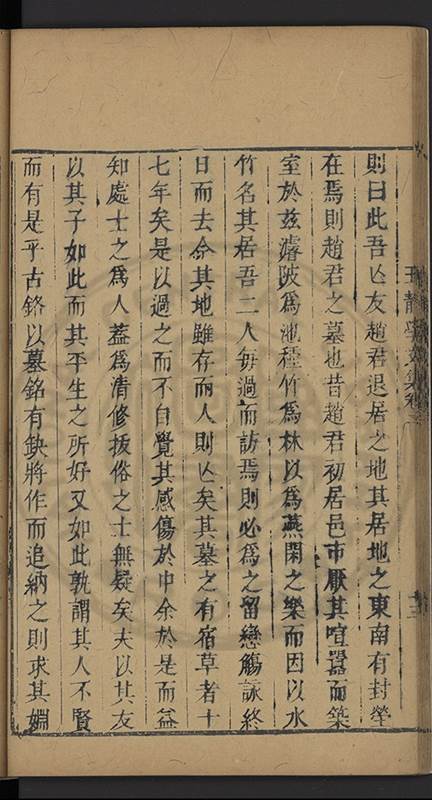 則曰此吾亾友趙君退居之地其居地之東南有封塋
在焉則趙君之墓也昔趙君初居邑市厭其喧囂而築
室於玆濬陂爲池種竹爲林以爲燕閑之樂而因以水
竹名其居吾二人每過而訪焉則必爲之留戀觴詠終
日而去今其地雖存而人則亾矣其墓之有宿草者十
七年矣是以過之而不自覺其感傷於中余於是而益
知處士之爲人葢爲清修拔俗之士無疑矣夫以其友
以其子如此而其平生之所好又如此孰謂其人不賢
而有是乎古鉻以墓銘有缺將作而追納之則求其嫺